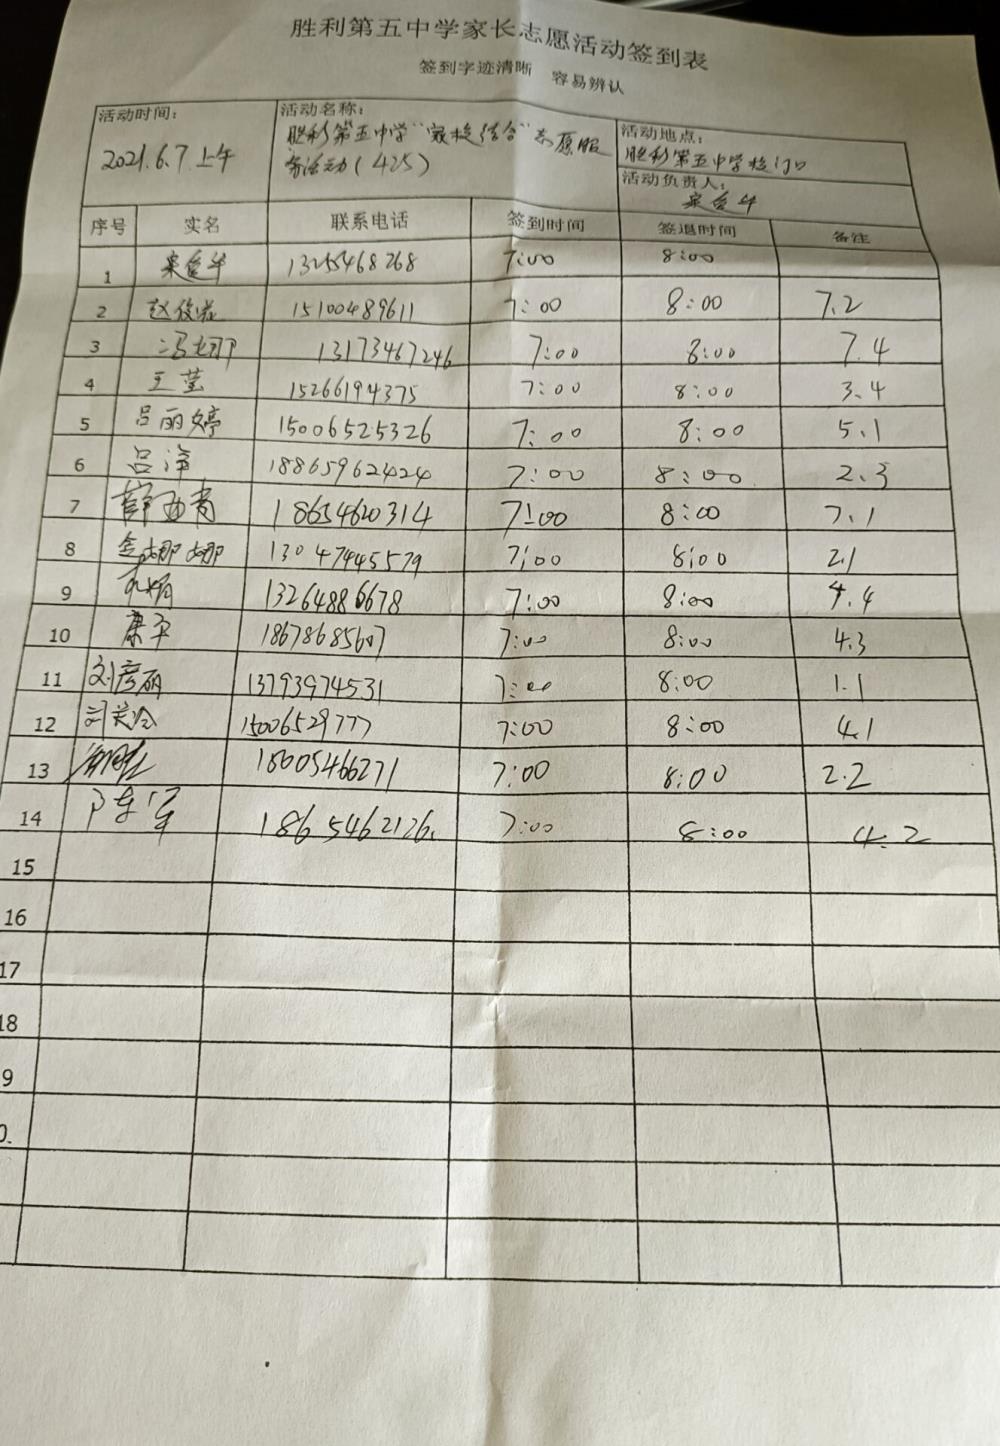 胜利第五中学家长志愿活动签到表
签到字迹清晰 容易辨认
活动时间: 2021.6.7.上午
活动名称: 胜利第五中学“家校结合”志愿服
务活动(425)
活动地点: 胜利第五中学校门口
活动负责人:
序号 实名 联系电话 签到时间 签退时间 备注
1 13255468268 7:00 8:00
2 15100489611 7:00 8:00 7.2
3 13173467246 7:00 8:00 7.4
4 王莹 15266194375 7:00 8:00 3.4
5 吕丽婷 15006525326 7:00 8:00 5.1
6 吕净 18865962424 7:00 8:00 2.3
7 18654620314 7:00 8:00 7.1
8 金娜娜 13047445579 7:00 8:00 2.1
9 13264886678 7:00 8:00 4.4
10 康平 18678685607 7:00 8:00 4.3
11 刘彦丽 13793974531 7:00 8:00 1.1
12 15006529777 7:00 8:00 4.1
13 18605466271 7:00 8:00 2.2
14 陈军 1865462126 7:00 8:00 4.2
15
16
17
18
9
0.